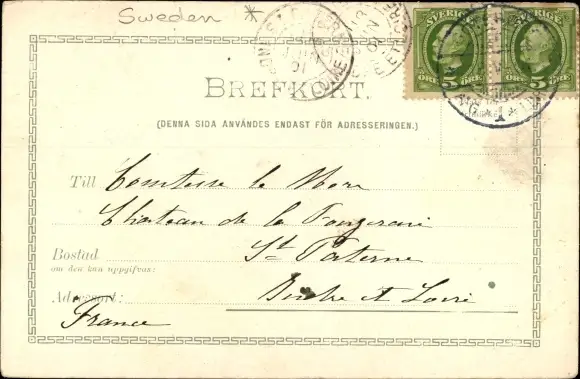 Sweden *
SVERIGE SVERIGE
ÖRE 5 ÖRE 5 ÖRE
BREFKORT.
(DENNA SIDA ANVÄNDES ENDAST FÖR ADRESSERINGEN.)
Till Comtesse le More
Chateau de la Fougeraie
Bostad St Paterne
om den kan uppgifvas:
Adressort: Indre et Loire
France